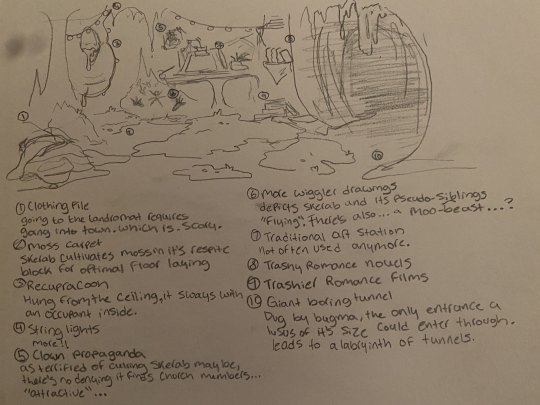 ① Clothing Pile
going to the landromat requires
going into town. which is. Scary.
② moss carpet
Skerab cultivates moss in it's respite
block for optimal floor laying
③ Recupracoon
Hung from the ceiling, it sways with
an occupant inside.
④ String lights
more!!
⑤ Clown propaganda
as terrified of culling Skerab may be,
there's no denying it finds church members...
"attractive"...
⑥ more wiggler drawings
depicts skerab and its pseudo-siblings
"flying". There's also... a moo-beast...?
⑦ Traditional art station
not often used anymore.
⑧ Trashy Romance novels
⑨ Trashier Romance films
⑩ Giant boring tunnel
Dug by bugma, the only entrance a
lusus of its size could enter through.
leads to a labryinth of tunnels.